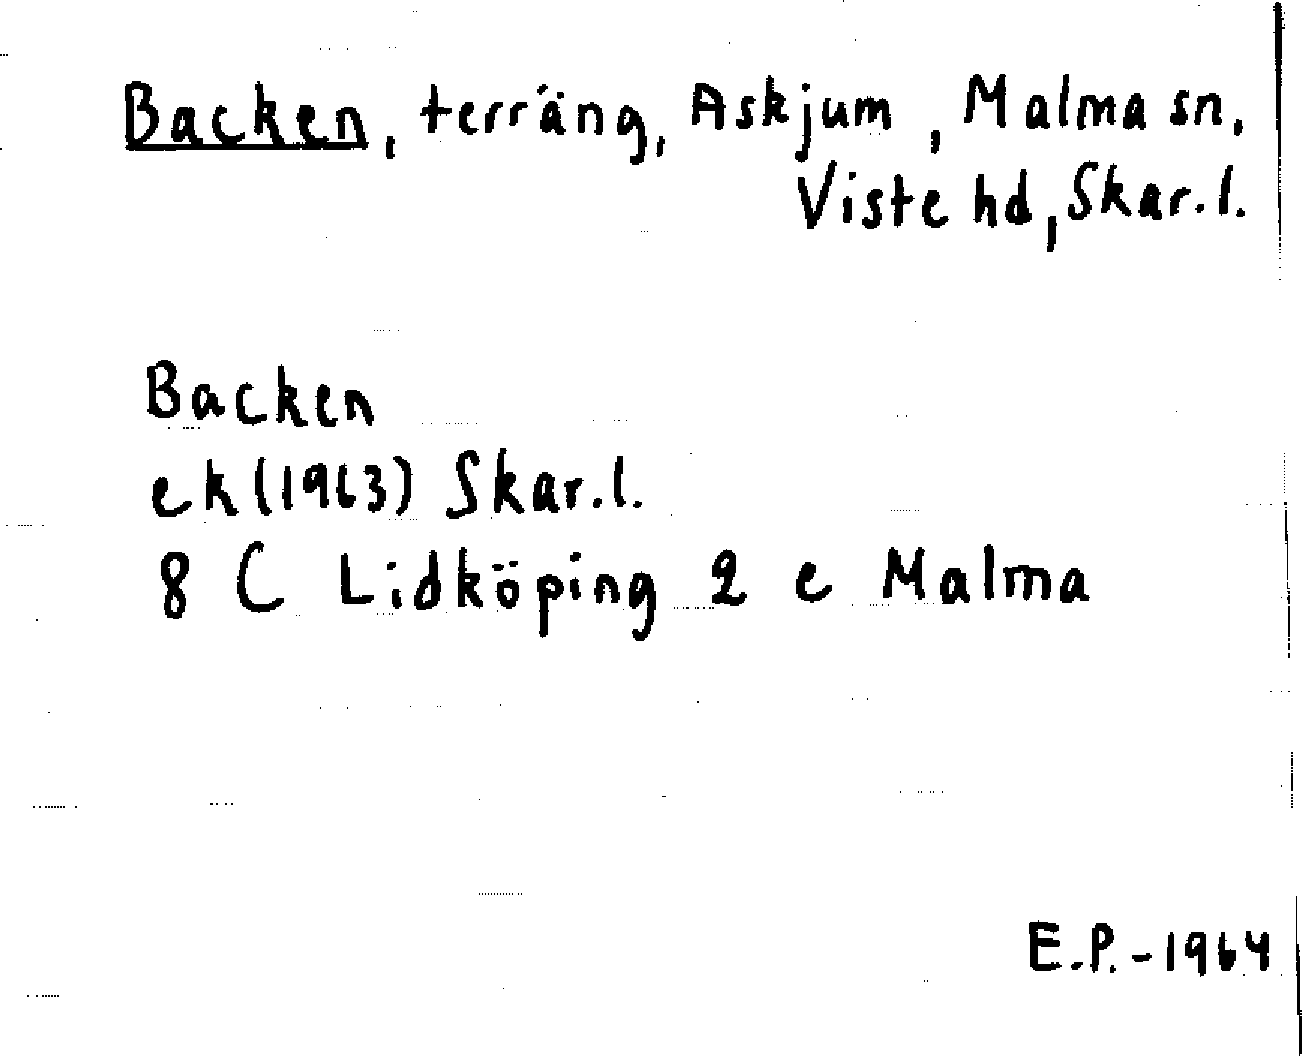 Backen, terräng, Askjum, Malma sn,
Viste hd, Skar.l.
Backen
ek (1963) Skar.l.
8 C Lidköping 2 e Malma
E.P.-1964